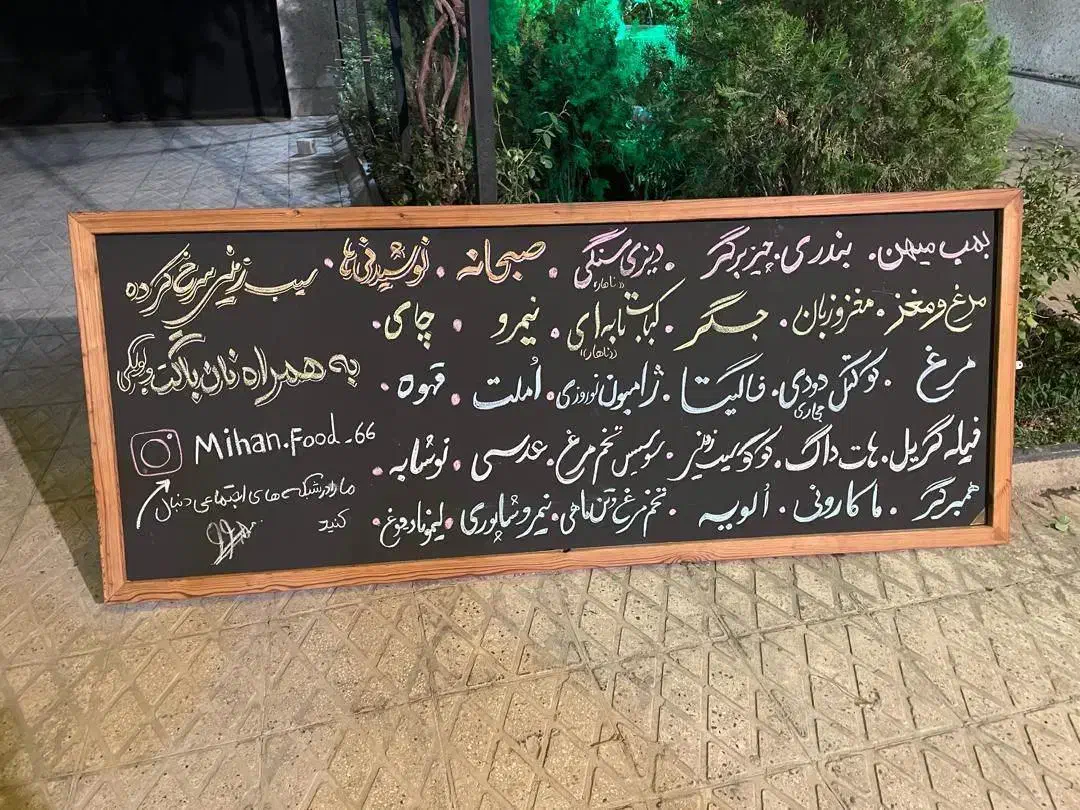 بمب میهن. بندری. چیزبرگر . دیزی سنگی . صبحانه . نوشیدنی ها .
((ناهار))
مرغ و مغز . مغز و زبان . جگر . کباب تابه ای . نیمرو . چای .
((ناهار))
مرغ . کوکتل دودی . خالیگتا . ژامبون نوروزی . اُملت . قهوه .
مجاری
فیله گریل . هات داگ . کوکو سیب زمینی . سوسیس تخم مرغ . عدسی . نوشابه .
همبرگر . ماکارونی . اُلویه . تخم مرغ و تن ماهی . نیمرو شاپوری . لیموناد دوغ .
سیب زمینی سرخ کرده
به همراه نان باگت و بولکی
Mihan.Food_66
ما را در شبکه های اجتماعی دنبال
کنید